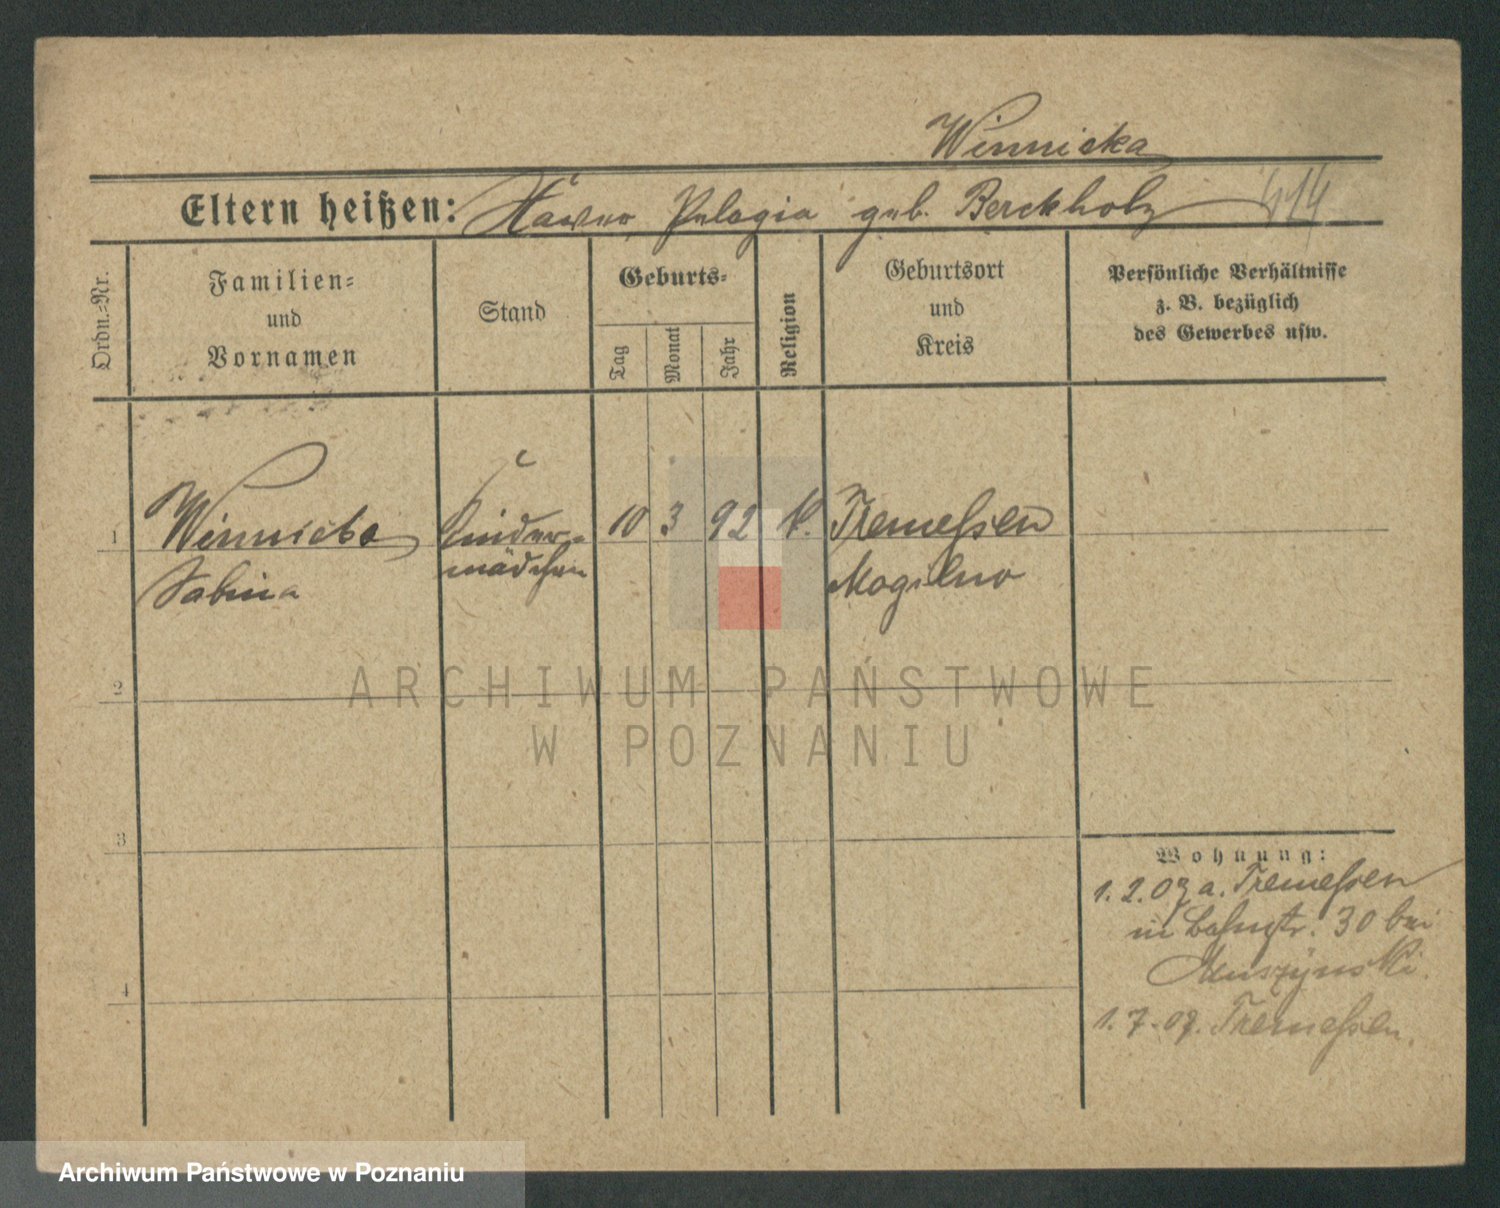 Winnicka
Eltern heißen: Pelagia geb. Berckholz 414
Ordn.-Nr.
Familien-
und
Vornamen
Stand
Geburts-
Tag
Monat
Jahr
Religion
Geburtsort
und
Kreis
Persönliche Verhältnisse
z. B. bezüglich
des Gewerbes usw.
1 Winnicka Kinder- 10 3 92 k. Tremessen
Sabina mädchen Mogilno
2
ARCHIWUM PAŃSTWOWE
W POZNANIU
3
Wohnung:
1.2.07 a. Tremessen
in Bahnstr. 30 bei
Muszÿnski.
4
1.7.07. Tremessen.
Archiwum Państwowe w Poznaniu